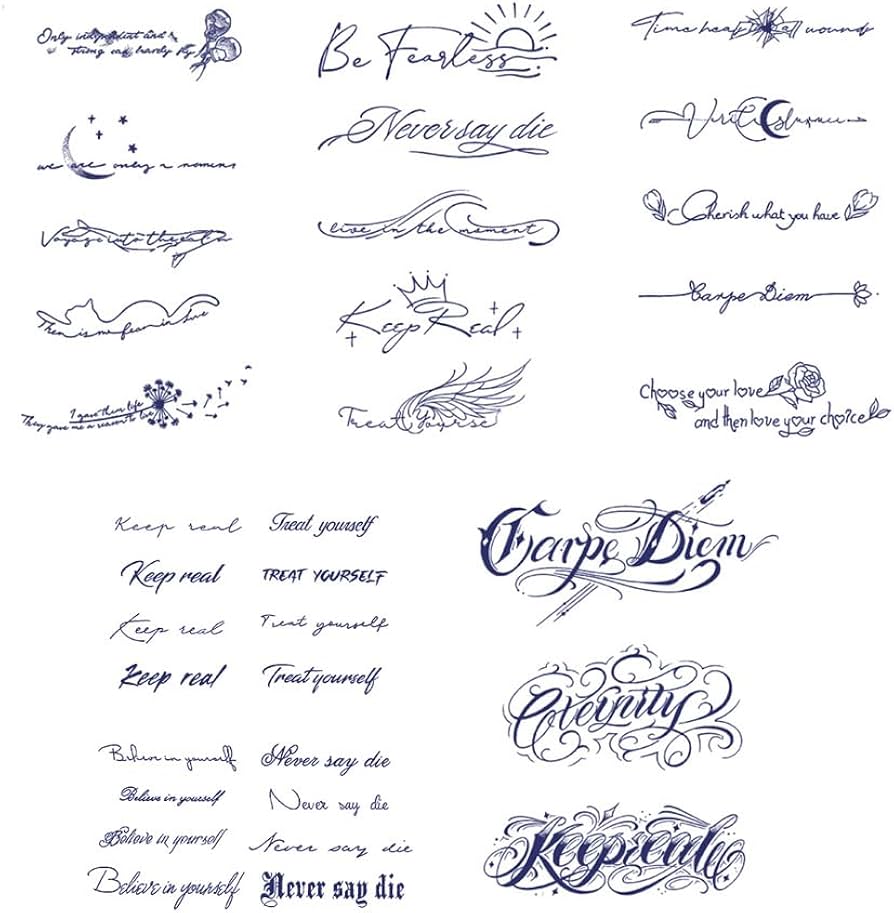 Only independent and
strong can barely fly
we are only a moment
Voyage into the
There is no fear in love
I gave them life
They gave me a reason to live
Be Fearless
Never say die
live in the moment
Keep Real
Treat Yourself
Time heals all wounds
Cherish what you have
Carpe Diem
Choose your love
and then love your choice
Keep real
Keep real
Keep real
Keep real
Treat yourself
TREAT YOURSELF
Treat yourself
Treat yourself
Believe in yourself
Believe in yourself
Believe in yourself
Believe in yourself
Never say die
Never say die
Never say die
Never say die
Carpe Diem
Eternity
Keep real